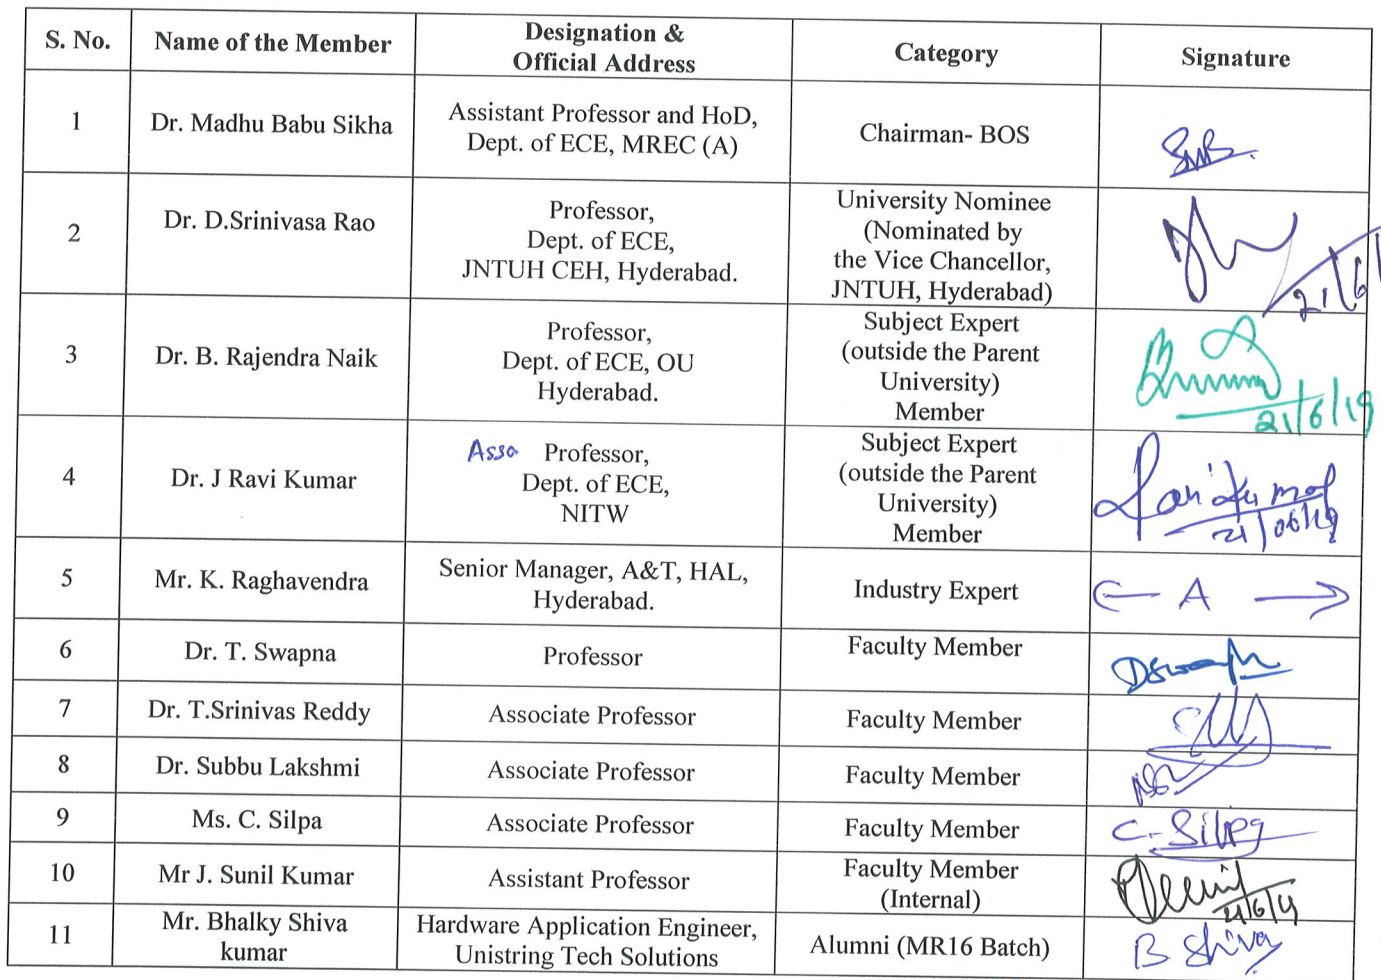 S. No. Name of the Member Designation & Official Address Category Signature
1 Dr. Madhu Babu Sikha Assistant Professor and HoD, Dept. of ECE, MREC (A) Chairman- BOS
2 Dr. D.Srinivasa Rao Professor, Dept. of ECE, JNTUH CEH, Hyderabad. University Nominee (Nominated by the Vice Chancellor, JNTUH, Hyderabad) 21/6/
3 Dr. B. Rajendra Naik Professor, Dept. of ECE, OU Hyderabad. Subject Expert (outside the Parent University) Member 21/6/19
4 Dr. J Ravi Kumar Asso Professor, Dept. of ECE, NITW Subject Expert (outside the Parent University) Member 21/06/19
5 Mr. K. Raghavendra Senior Manager, A&T, HAL, Hyderabad. Industry Expert A
6 Dr. T. Swapna Professor Faculty Member
7 Dr. T.Srinivas Reddy Associate Professor Faculty Member
8 Dr. Subbu Lakshmi Associate Professor Faculty Member
9 Ms. C. Silpa Associate Professor Faculty Member C. Silpa
10 Mr J. Sunil Kumar Assistant Professor Faculty Member (Internal) 21/6/19
11 Mr. Bhalky Shiva kumar Hardware Application Engineer, Unistring Tech Solutions Alumni (MR16 Batch) B Shiva